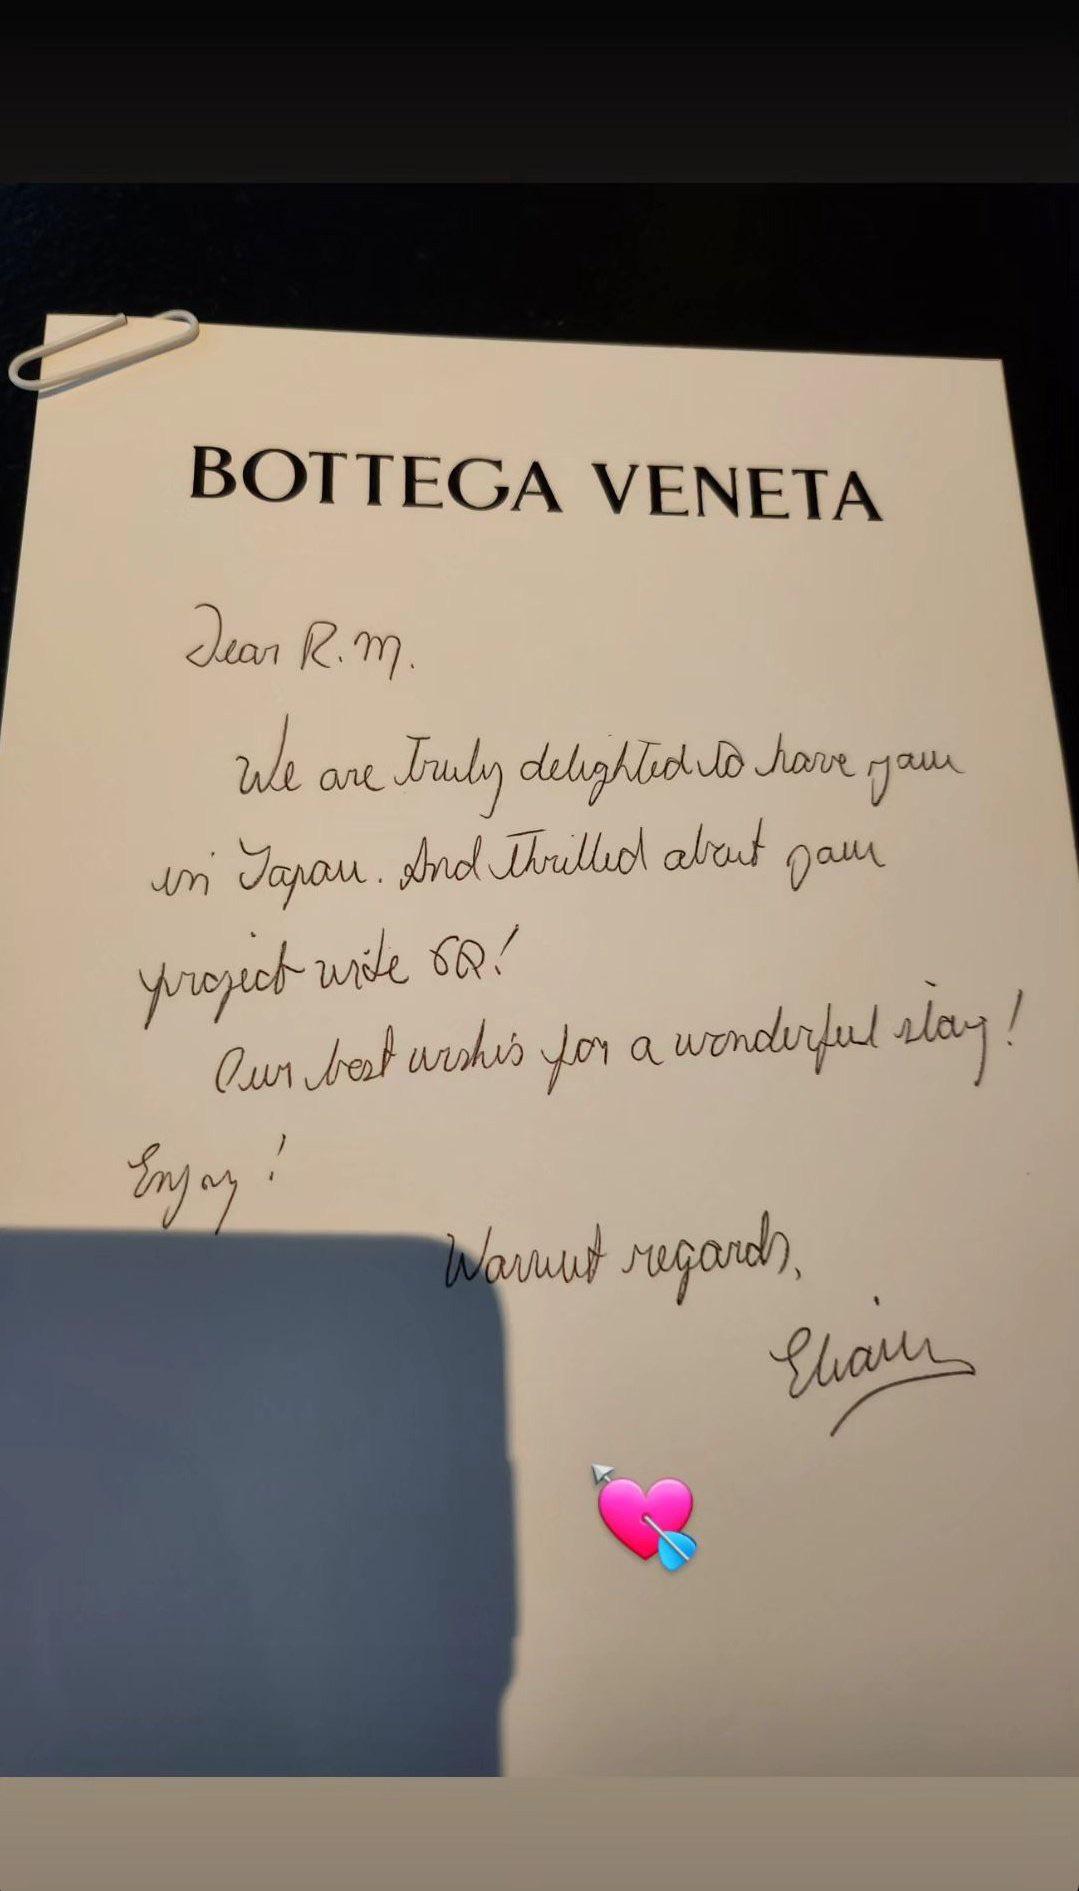 BOTTEGA VENETA
Dear R.M.
We are truly delighted to have you
in Japan. And thrilled about your
project with GQ!
Our best wishes for a wonderful stay!
Enjoy!
Warmest regards,